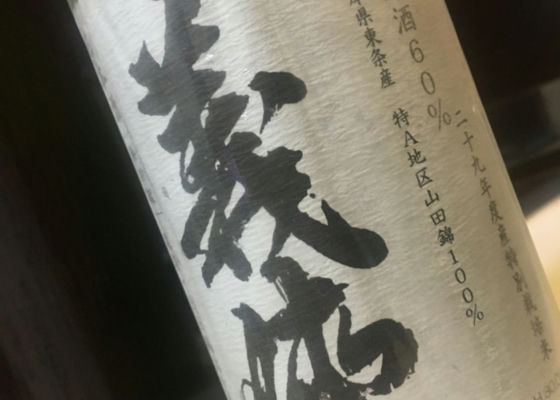 酒60%
県東条産 特A地区山田錦100%
二十九年度産特別栽培米
義侠